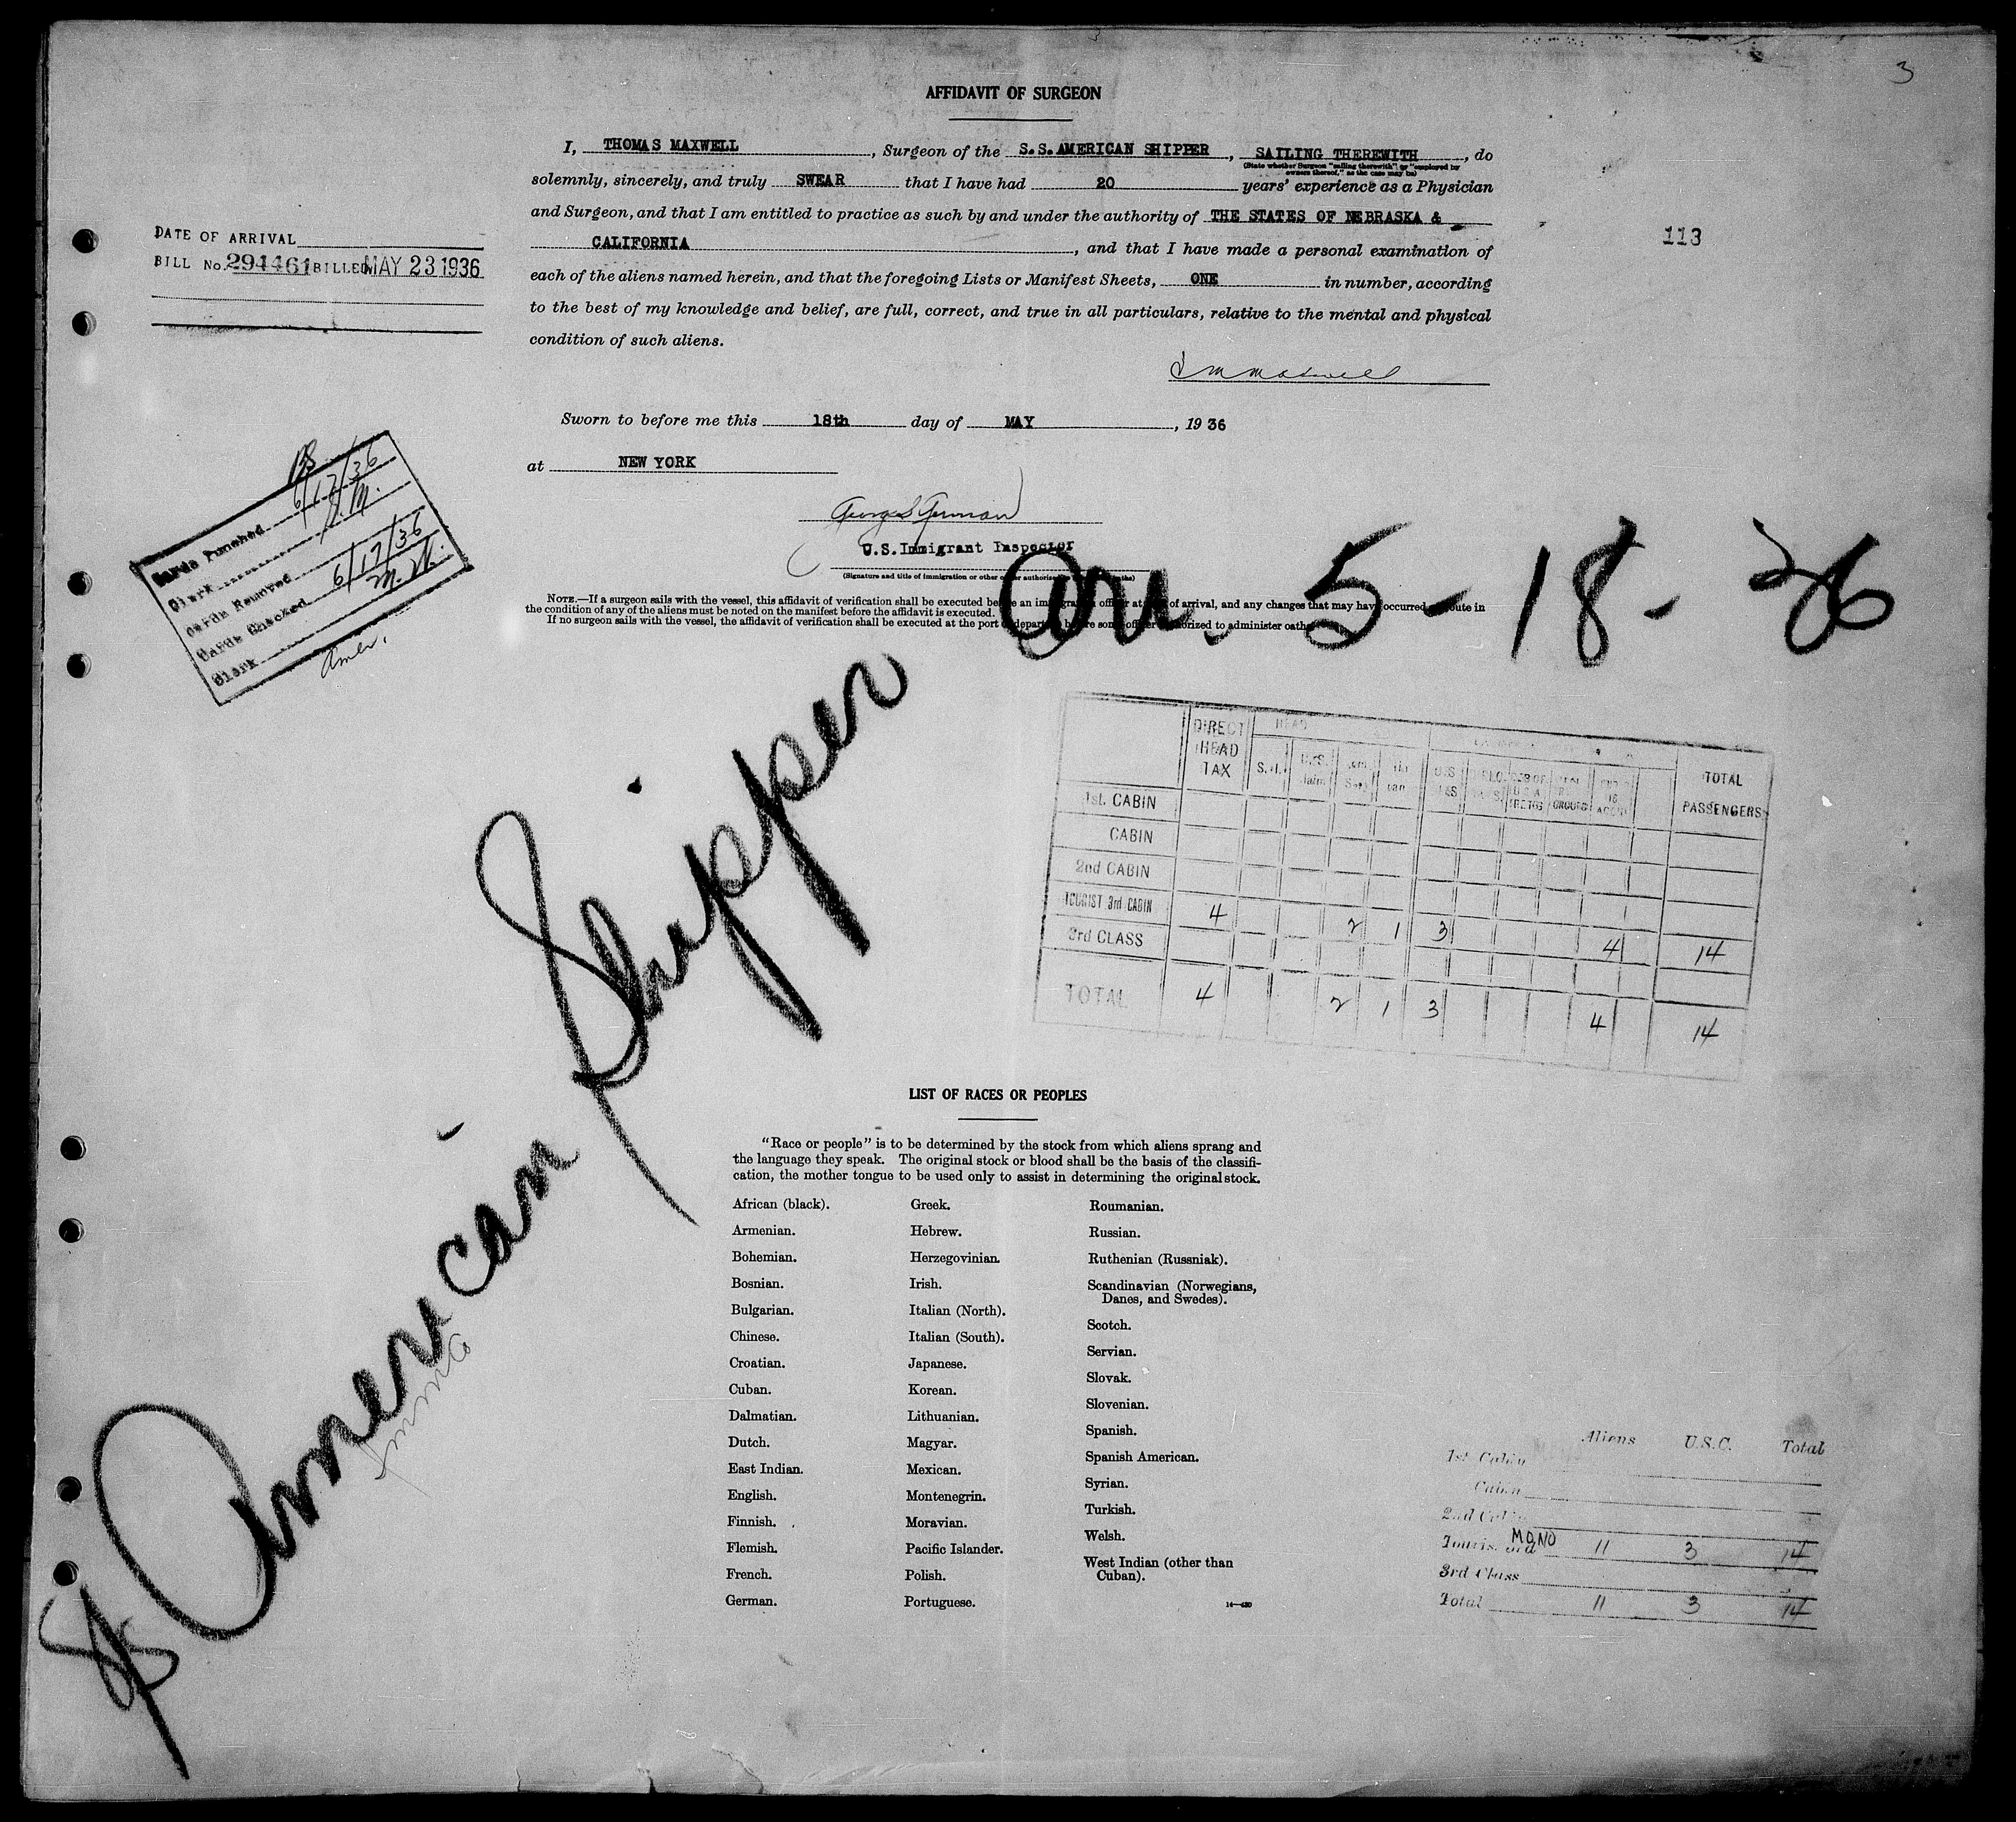 3
AFFIDAVIT OF SURGEON
I, THOMAS MAXWELL, Surgeon of the S.S.AMERICAN SHIPPER, SAILING THEREWITH, do
(State whether Surgeon "sailing therewith" or "employed by
owners thereof," as the case may be)
solemnly, sincerely, and truly SWEAR that I have had 20 years' experience as a Physician
and Surgeon, and that I am entitled to practice as such by and under the authority of THE STATES OF NEBRASKA &
CALIFORNIA, and that I have made a personal examination of
each of the aliens named herein, and that the foregoing Lists or Manifest Sheets, ONE in number, according
to the best of my knowledge and belief, are full, correct, and true in all particulars, relative to the mental and physical
condition of such aliens.
113
DATE OF ARRIVAL
BILL No. 294461 BILLED MAY 23 1936
Sworn to before me this 18th day of MAY, 1936
at NEW YORK
U.S.Immigrant Inspector
(Signature and title of immigration or other officer authorized oaths)
Cards Punched 6/17/36
Clerk
Cards Removed
Cards Checked 6/17/36
Clerk
Amer.
NOTE.—If a surgeon sails with the vessel, this affidavit of verification shall be executed before an immigration officer at port of arrival, and any changes that may have occurred en route in
the condition of any of the aliens must be noted on the manifest before the affidavit is executed.
If no surgeon sails with the vessel, the affidavit of verification shall be executed at the port of departure before some officer authorized to administer oaths.
Arr. 5-18-36
S/S American Shipper
DIRECT HEAD TAX
HEAD
TOTAL PASSENGERS
1st. CABIN
CABIN
2nd CABIN
TOURIST 3rd CABIN 4 2 1 3 4 14
3rd CLASS
TOTAL 4 2 1 3 4 14
LIST OF RACES OR PEOPLES
"Race or people" is to be determined by the stock from which aliens sprang and
the language they speak. The original stock or blood shall be the basis of the classifi-
cation, the mother tongue to be used only to assist in determining the original stock.
African (black).
Armenian.
Bohemian.
Bosnian.
Bulgarian.
Chinese.
Croatian.
Cuban.
Dalmatian.
Dutch.
East Indian.
English.
Finnish.
Flemish.
French.
German.
Greek.
Hebrew.
Herzegovinian.
Irish.
Italian (North).
Italian (South).
Japanese.
Korean.
Lithuanian.
Magyar.
Mexican.
Montenegrin.
Moravian.
Pacific Islander.
Polish.
Portuguese.
Roumanian.
Russian.
Ruthenian (Russniak).
Scandinavian (Norwegians,
Danes, and Swedes).
Scotch.
Servian.
Slovak.
Slovenian.
Spanish.
Spanish American.
Syrian.
Turkish.
Welsh.
West Indian (other than
Cuban).
Aliens U.S.C. Total
1st Cabin
Cabin
2nd Cabin
Tourist 3rd MONO 11 3 14
3rd Class
Total 11 3 14